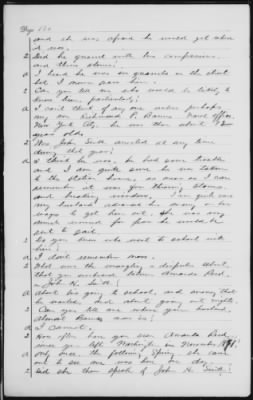 and she was afraid he would get what
it was.
Q Did he quarrel with his companions
and throw stones?
A I heard he was in quarrels on the street
but I never saw him.
Q Can you tell me who would be likely to
know him, particularly?
A I can't think of any one unless perhaps
my son Richmond P. Barnes. Naval Office,
New York City. He was then about 12
years old.
Q Was John Smith arrested at any time
during that year?
A I think he was, he had some trouble
and I am quite sure he was taken
to the station house, as near as I can
remember it was for throwing stones
and breaking windows. I am quite sure
my husband advanced his money on her
wages to get him out, she was very
much worried for fear he would be
sent to jail.
Q Do you know who went to school with
him?
A I don't remember now.
Q What were the wrangles or disputes about,
that you overheard between Amanda Reid
and John H. Smith?
A About his going to school, and among that
he wanted, and about going out nights.
Q Can you tell me where your husband,
Barnes now is?
A I cannot.
Q How often have you seen Amanda Reid
since you left Washington in November 1871?
A Only once, the following Spring she came
to see me one day.
Q Did she then speak of John H. Smith?